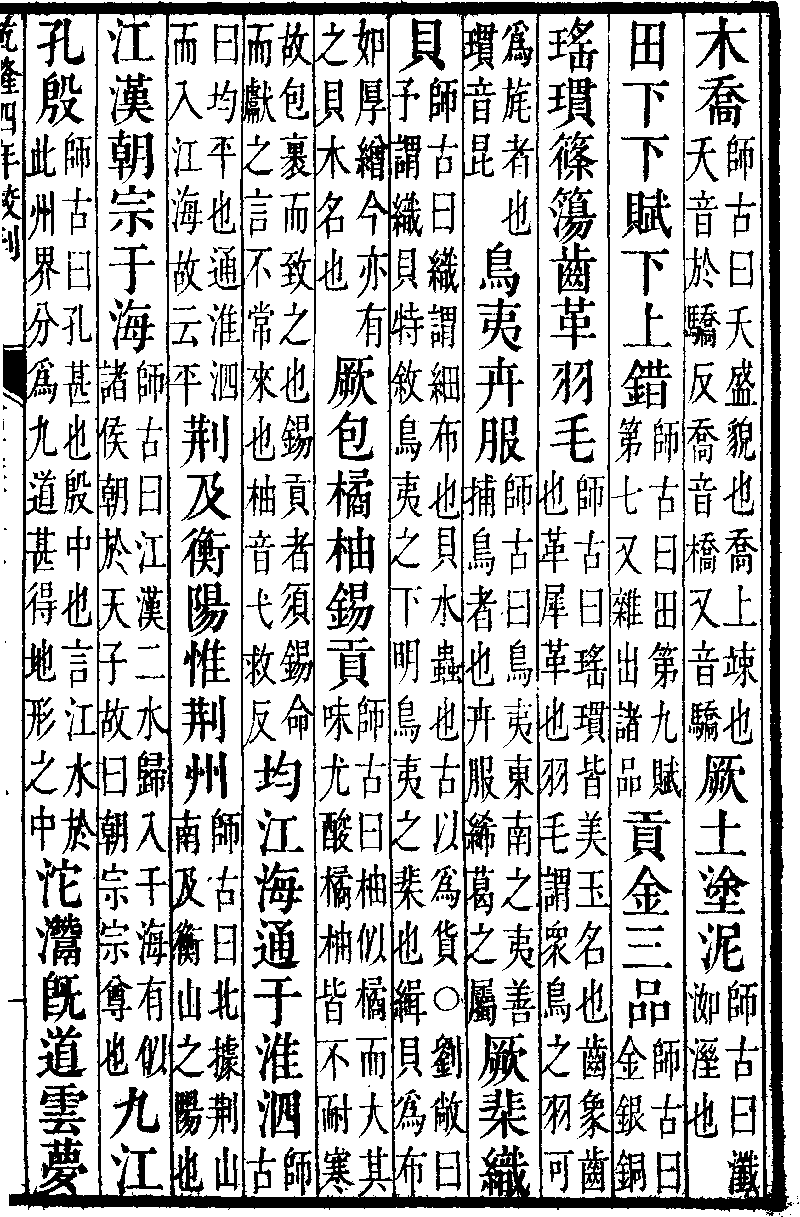 木喬師古曰夭盛貌也喬上竦也夭音於驕反喬音橋又音驕厥土塗泥師古曰瀸洳溼也
田下下賦下上錯師古曰田第九賦第七又雜出諸品貢金三品師古曰金銀銅
瑤瑻篠簜齒革羽毛師古曰瑤瑻皆美玉名也齒象齒也革犀革也羽毛謂衆鳥之羽可
爲旄者也瑻音昆鳥夷卉服師古曰鳥夷東南之夷善捕鳥者也卉服絺葛之屬厥棐織
貝師古曰織謂細布也貝水蟲也古以爲貨○劉敞曰予謂織貝特敘鳥夷之下明鳥夷之棐也緝貝爲布
如厚繒今亦有之貝木名也厥包橘柚錫貢師古曰柚似橘而大其味尤酸橘柚皆不耐寒
故包裹而致之也錫貢者須錫命而獻之言不常來也柚音弋救反均江海通于淮泗師古
曰均平也通淮泗而入江海故云平荆及衡陽惟荆州師古曰北據荆山南及衡山之陽也
江漢朝宗于海師古曰江漢二水歸入于海有似諸侯朝於天子故曰朝宗宗尊也九江
孔殷師古曰孔甚也殷中也言江水於此州界分爲九道甚得地形之中沱灊既道雲夢
乾隆四年校刊